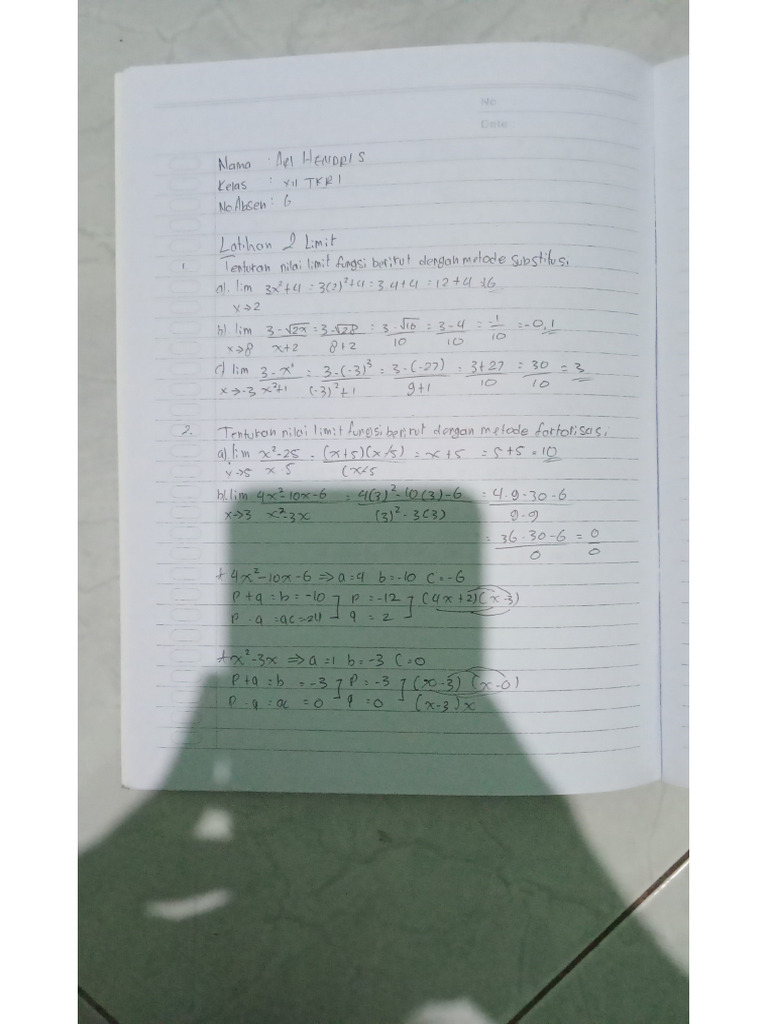 No
Date
Nama : ARI HENDRIS
Kelas : XII TKR 1
No Absen : 6
Latihan 2 Limit
1. Tentukan nilai limit fungsi berikut dengan metode substitusi.
a). lim x→2 3x²+4 = 3(2)²+4 = 3.4+4 = 12+4 = 16
b) lim x→8 (3-√2x)/(x+2) = (3-√28)/(8+2) = (3-√16)/10 = (3-4)/10 = -1/10 = -0,1
c) lim x→-3 (3-x³)/(x²+1) = (3-(-3)³)/((-3)²+1) = (3-(-27))/(9+1) = (3+27)/10 = 30/10 = 3
2. Tentukan nilai limit fungsi berikut dengan metode faktorisasi
a) lim x→5 (x²-25)/(x 5) = (x+5)(x-5)/(x-5 = x+5 = 5+5 = 10
b). lim x→3 (4x²-10x-6)/(x²-3x) = (4(3)²-10(3)-6)/((3)²-3(3)) = (4.9-30-6)/(9-9)
= (36-30-6)/0 = 0/0
+ 4x²-10x-6 ⇒ a=4 b=-10 c=-6
P+q = b = -10 ] P = -12 ] (4x+2)(x-3)
P.q = ac = -24 ] q = 2
+ x²-3x ⇒ a=1 b=-3 C=0
P+q = b = -3 ] P = -3 ] (x-3) (x-0)
P.q = ac = 0 ] q = 0 ] (x-3)x